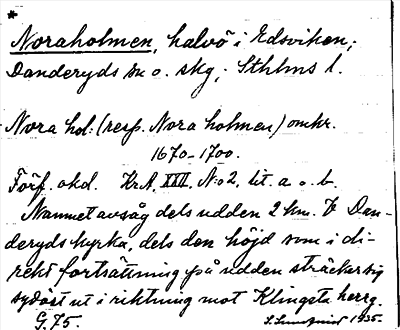 *
Noraholmen, halvö i Edsviken;
Danderyds sn o. skg; Sthlms l.
Nora hol: (resp. Nora holmen) omkr.
1670-1700.
Förf. okd. KrA. XXII. N:o 2, lit. a o. b.
Namnet avsåg dels udden 2 km. V Dan-
deryds kyrka, dels den höjd som i di-
rekt fortsättning på udden sträcker sig
sydöst ut i riktning mot Klingsta herrg.
G. 75. 1935.